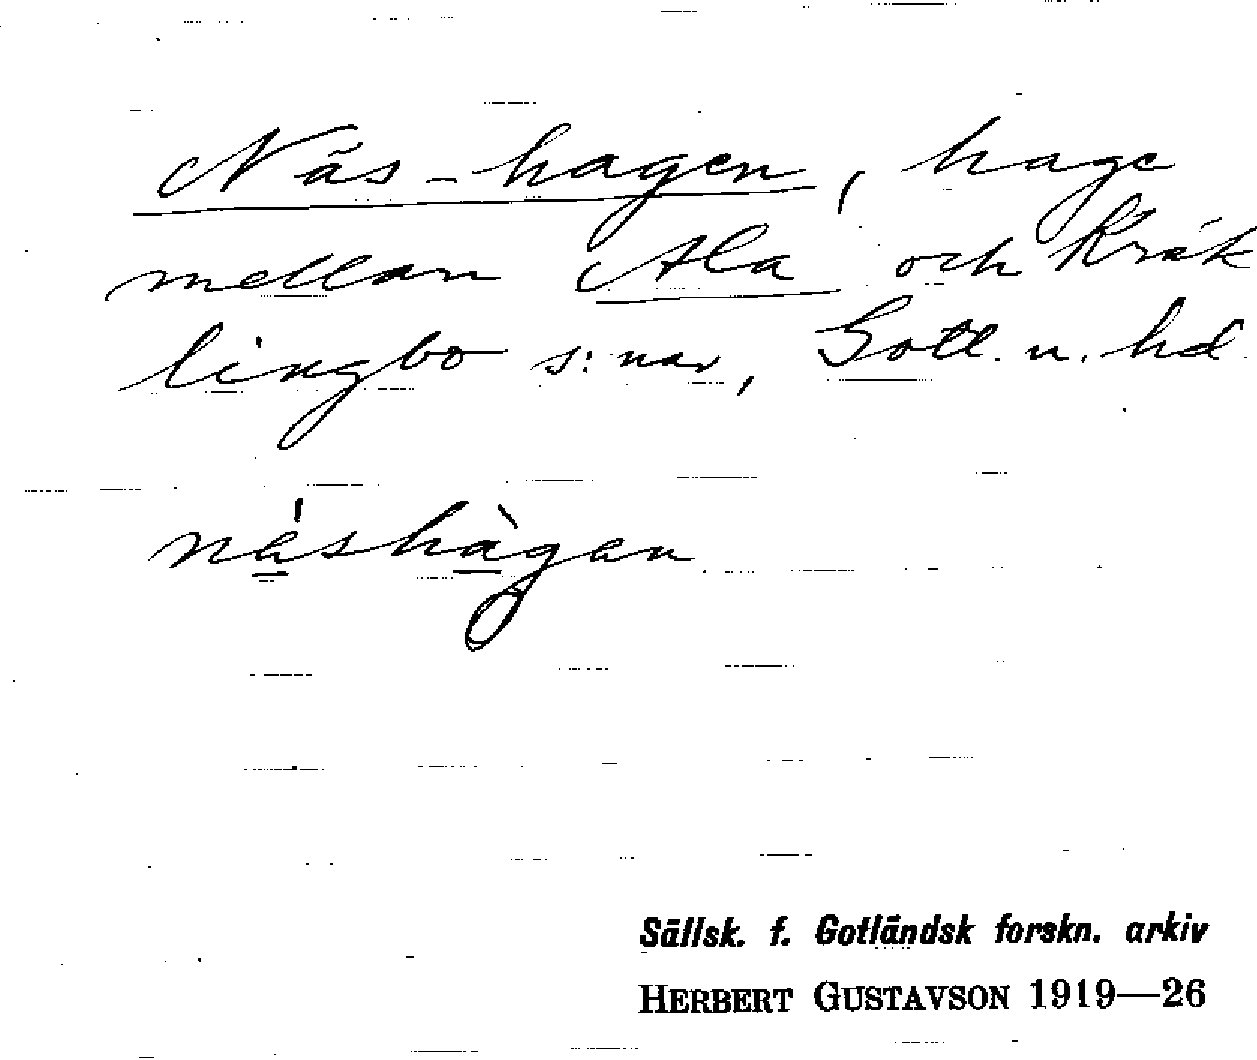 Näs-hagen, hage
mellan Ala och Kräk
lingbo s:nar, Gotl. n. hd.
nä̀shàgen
Sällsk. f. Gotländsk forskn. arkiv
HERBERT GUSTAVSON 1919—26